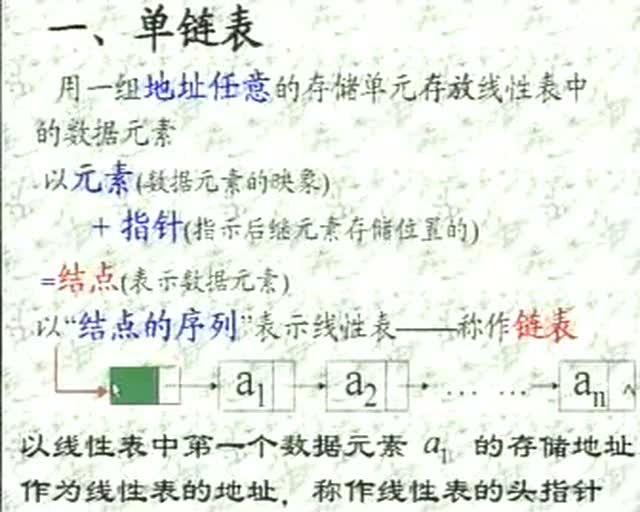 一、单链表
用一组地址任意的存储单元存放线性表中
的数据元素
以元素(数据元素的映象)
+ 指针(指示后继元素存储位置的)
=结点(表示数据元素)
以“结点的序列”表示线性表——称作链表
a1 a2 … … an ^
以线性表中第一个数据元素 a1 的存储地址
作为线性表的地址，称作线性表的头指针